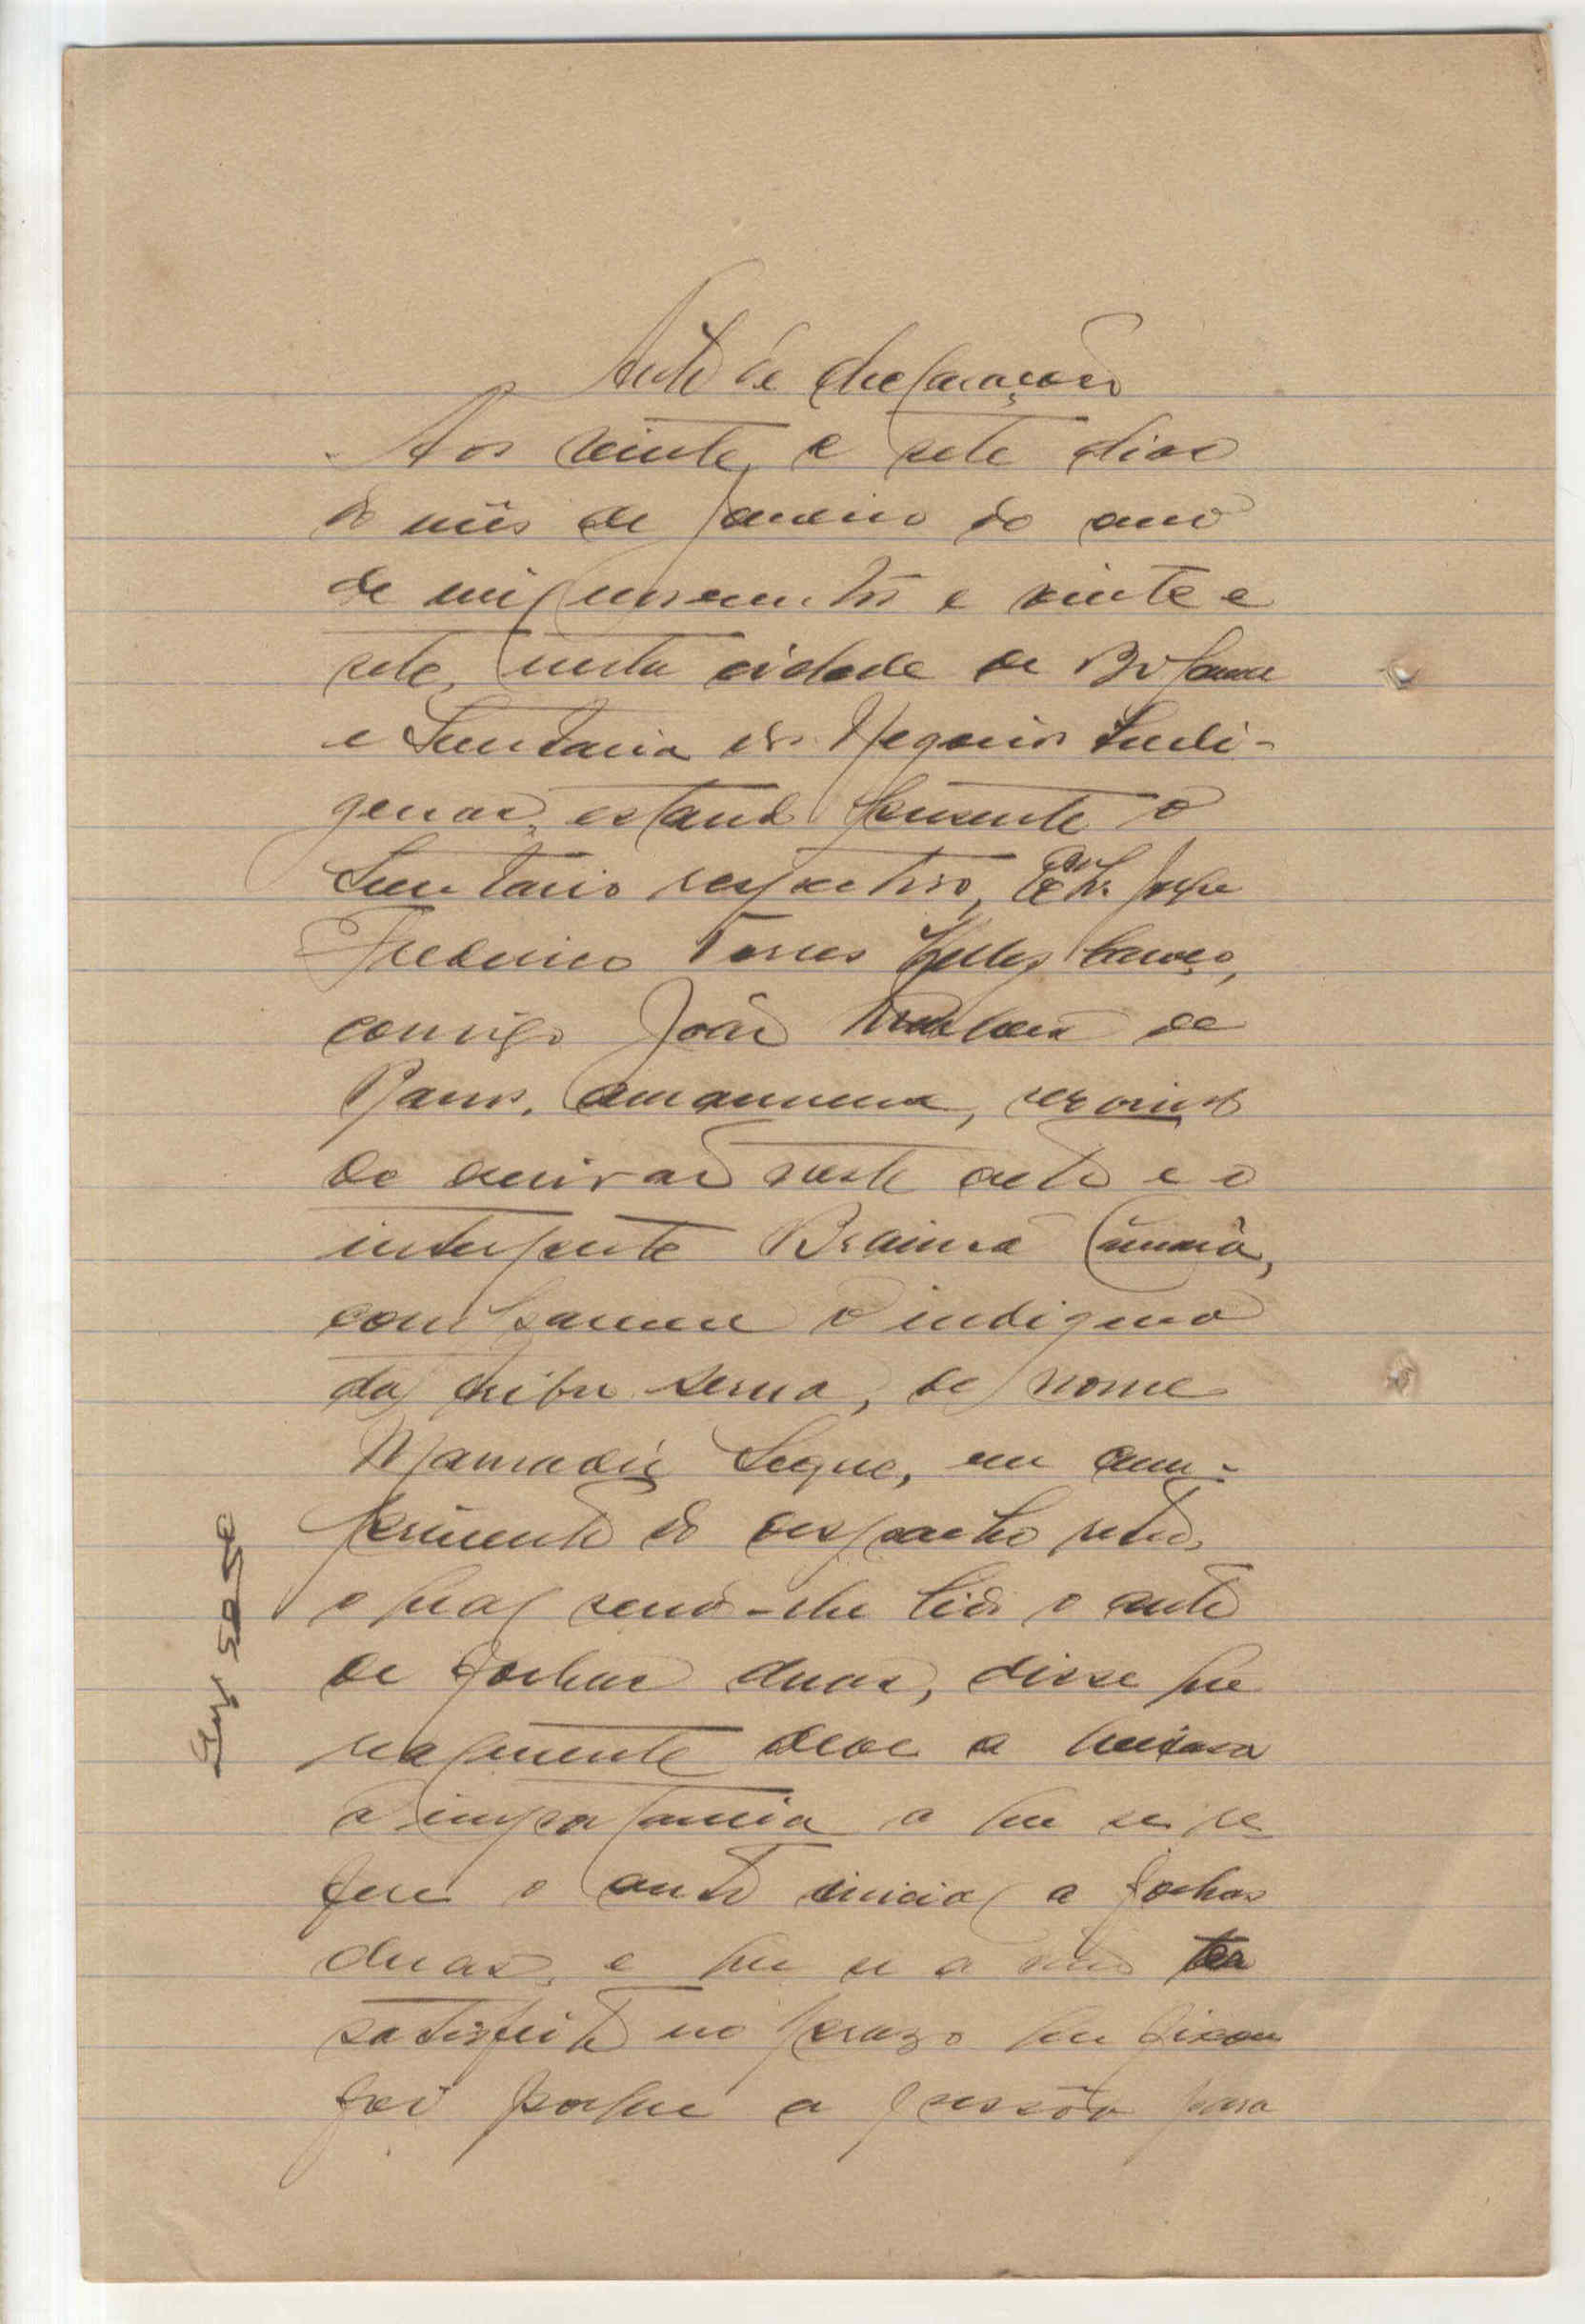 Auto de declarações
Aos vinte e sete dias
do mês de Janeiro do ano
de mil novecentos e vinte e
sete, nesta cidade de Bolama
e Secretaria dos Negocios Indi-
genas, estando presente o
Secretario respectivo, Ex.mo Sr. Jorge
Frederico Torres Velez Caroço,
comigo João de
Barros, amanuense, servindo
de escrivão neste auto e o
interprete Braima Camará,
compareceu o indigena
da tribu , de nome
Mamadú Seque, em cum-
primento do despacho retro,
o qual sendo-lhe lido o auto
de folhas duas, disse que
realmente deve a
a importancia a que se re-
fere o auto inicial a folhas
duas, e que se a não tem
satisfeito no prazo que ficou
foi porque a pessôa para